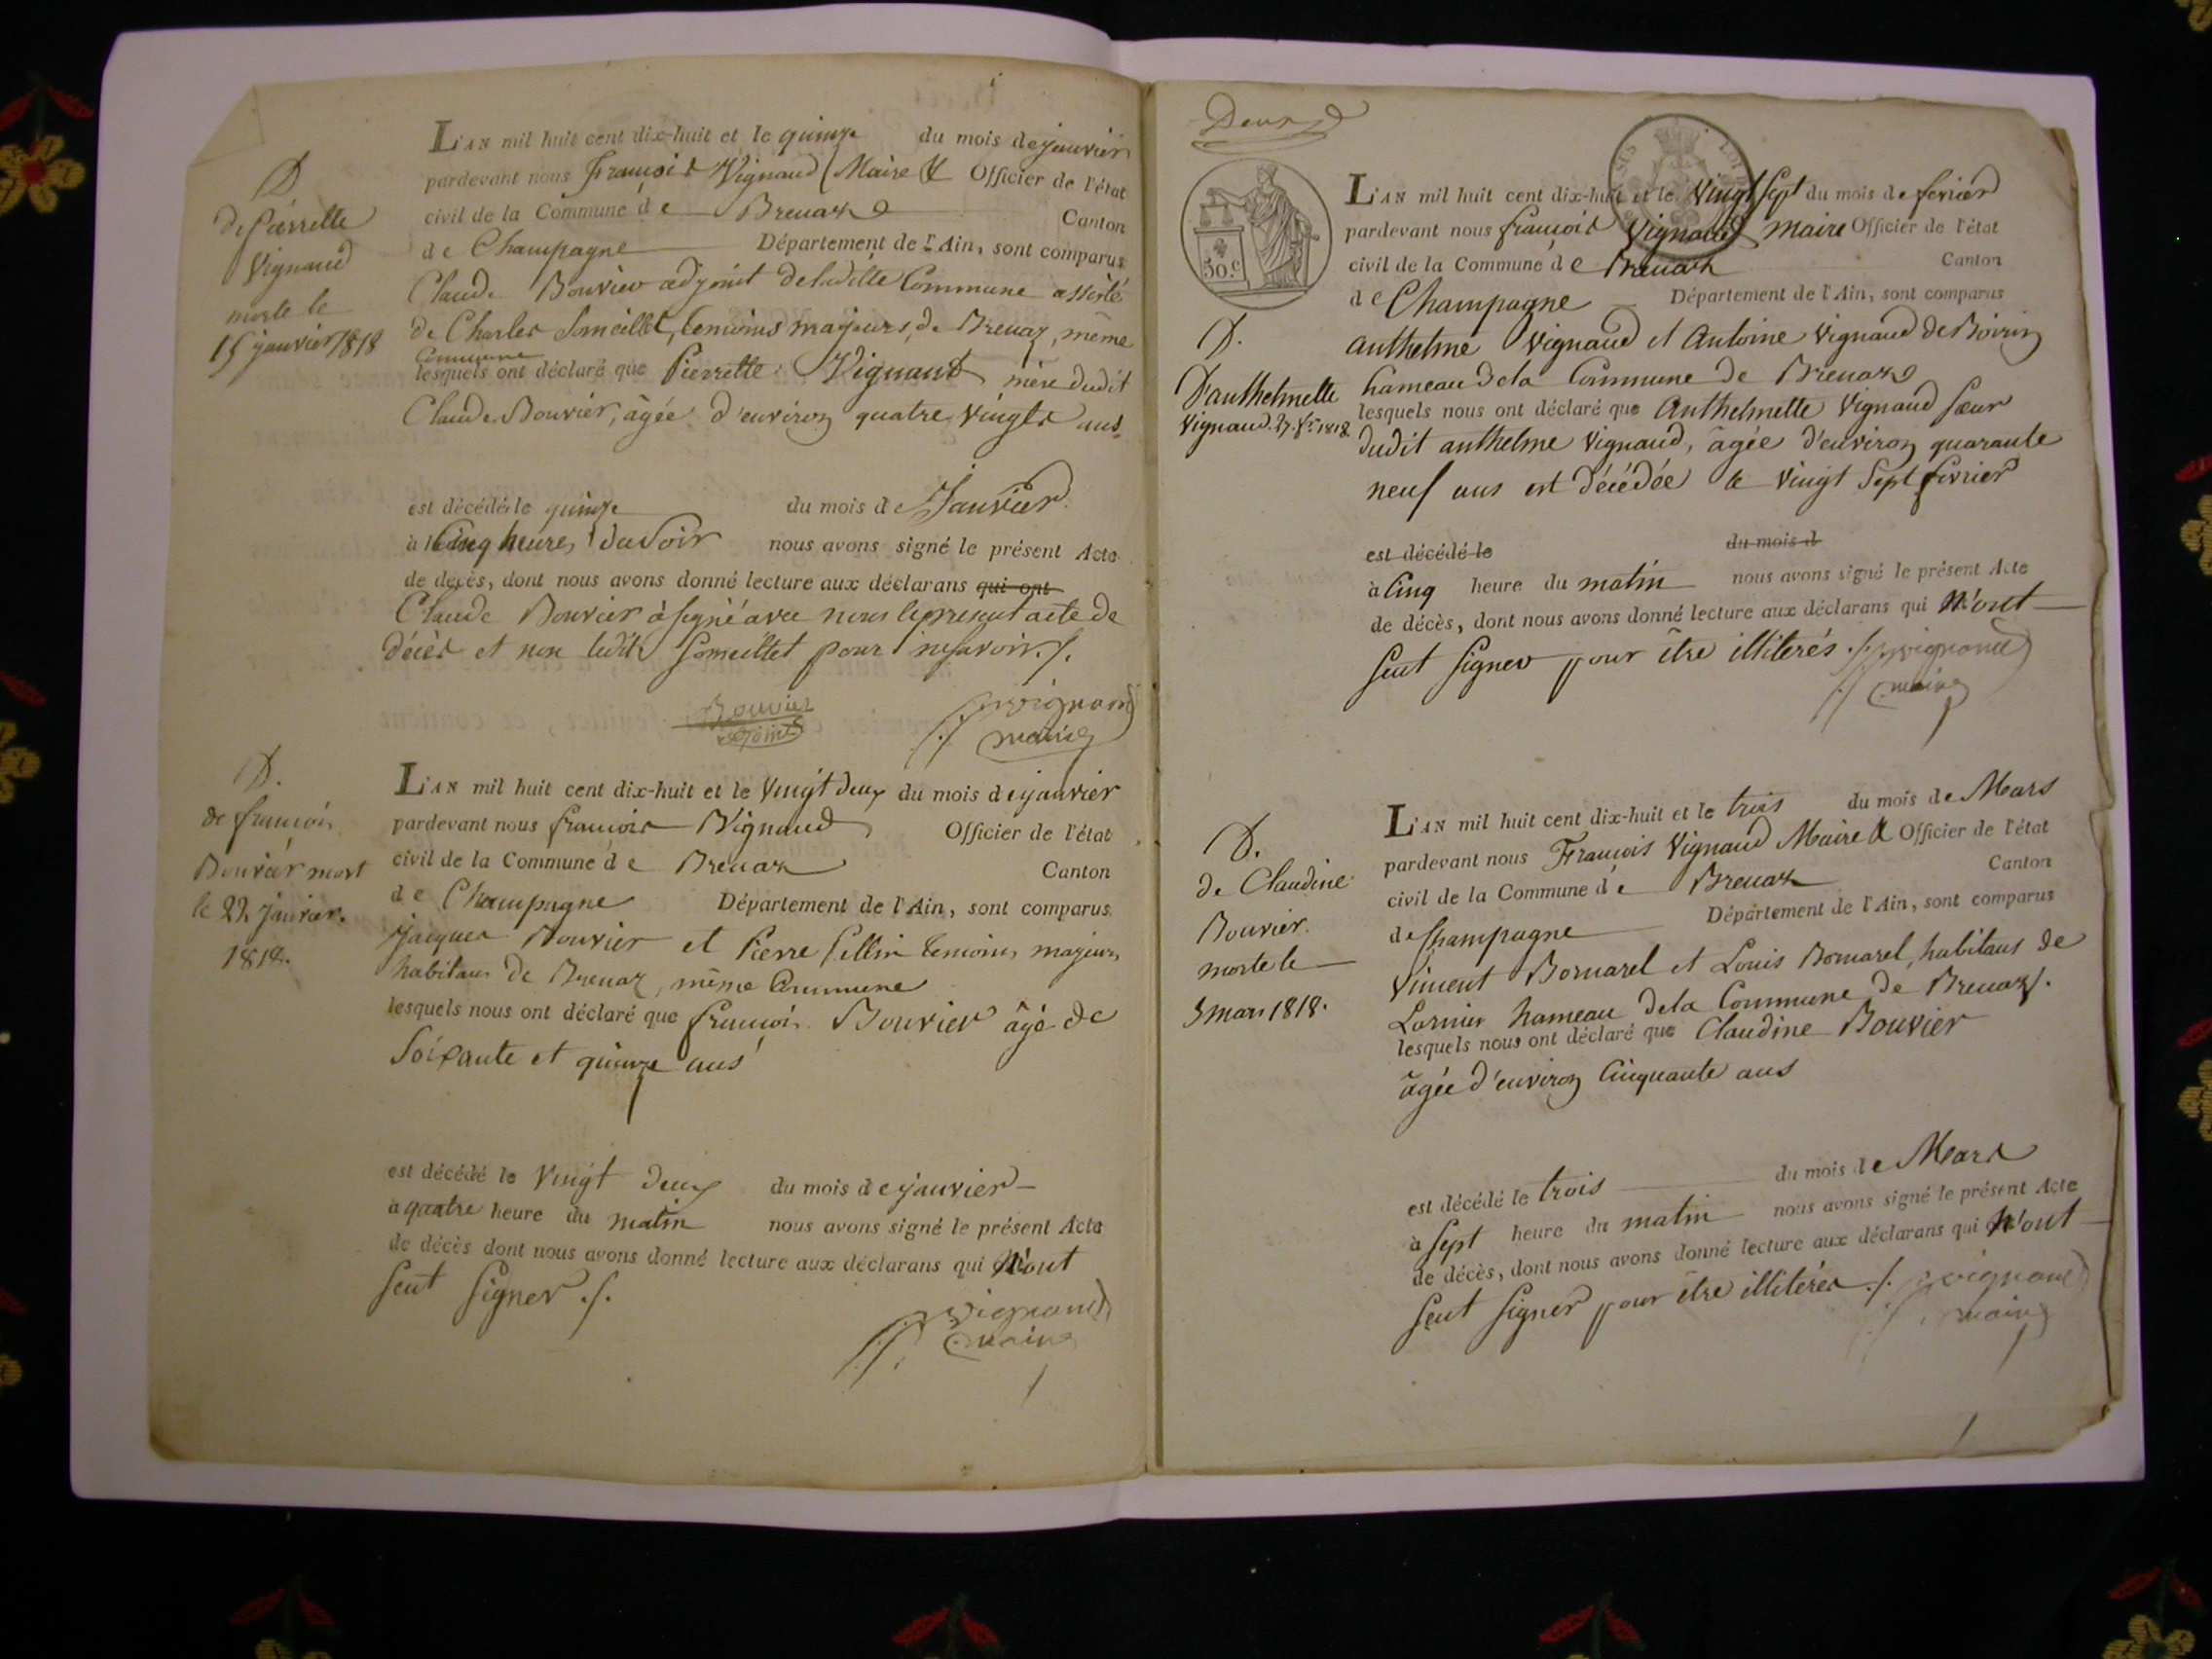 D
de Pierrette
Vignaud
morte le
15 janvier 1818
L'AN mil huit cent dix-huit et le quinze du mois de janvier
pardevant nous François Vignaud Maire & Officier de l'état
civil de la Commune de Brenaz Canton
de Champagne Département de l'Ain, sont comparus
Claude Bouvier adjoint de ladite Commune assisté
de Charles Someillet, temoins majeurs, de Brenaz, même
Commune
lesquels ont déclaré que Pierrette Vignaud mère dudit
Claude Bouvier, âgée d'environ quatre vingts ans
est décédé le quinze du mois de Janvier
à Cinq heures du Soir nous avons signé le présent Acte
de décès, dont nous avons donné lecture aux déclarans qui ont
Claude Bouvier à signé avec nous le present acte de
décès et non ledit Someillet pour ne savoir ./.
Bouvier
adjoint
vignaud
maire
D.
de françois
Bouvier mort
le 22 janvier.
1818.
L'AN mil huit cent dix-huit et le Vingt deux du mois de janvier
pardevant nous françois Vignaud Officier de l'état
civil de la Commune de Brenaz Canton
de Champagne Département de l'Ain, sont comparus
Jacques Bouvier et Pierre temoins majeurs
habitans de Brenaz, même Commune
lesquels nous ont déclaré que françois Bouvier âgé de
Soixante et quinze ans
est décédé le Vingt deux du mois de janvier
à quatre heure du matin nous avons signé le présent Acte
de décès dont nous avons donné lecture aux déclarans qui N'ont
Seut Signer ./.
vignaud
maire
Deux
50.c
D.
D'anthelmette
Vignaud. 27. fr 1818
L'AN mil huit cent dix-huit et le Vingt Sept du mois de fevrier
pardevant nous françois Vignaud maire Officier de l'état
civil de la Commune de Brenaz Canton
de Champagne Département de l'Ain, sont comparus
anthelme Vignaud et Antoine Vignaud de Boirin
hameau de la Commune de Brenaz
lesquels nous ont déclaré que Anthelmette Vignaud Sœur
dudit anthelme Vignaud, âgée d'environ quarante
neuf ans est décédée le vingt Sept fevrier
est décédé le du mois d
à Cinq heure du matin nous avons signé le présent Acte
de décès, dont nous avons donné lecture aux déclarans qui N'ont
Seut Signer pour être illiterés ./. vignaud
maire
D.
de Claudine
Bouvier.
morte le
3 mars 1818.
L'AN mil huit cent dix-huit et le trois du mois de Mars
pardevant nous François Vignaud Maire & Officier de l'état
civil de la Commune de Brenaz Canton
de Champagne Département de l'Ain, sont comparus
Vincent Bornarel et Louis Bornarel, habitans de
hameau de la Commune de Brenaz.
lesquels nous ont déclaré que Claudine Bouvier
âgée d'environ Cinquante ans
est décédé le trois du mois de Mars
à Sept heure du matin nous avons signé le présent Acte
de décès, dont nous avons donné lecture aux déclarans qui N'ont
Seut Signer pour être illiterés ./. vignaud
maire